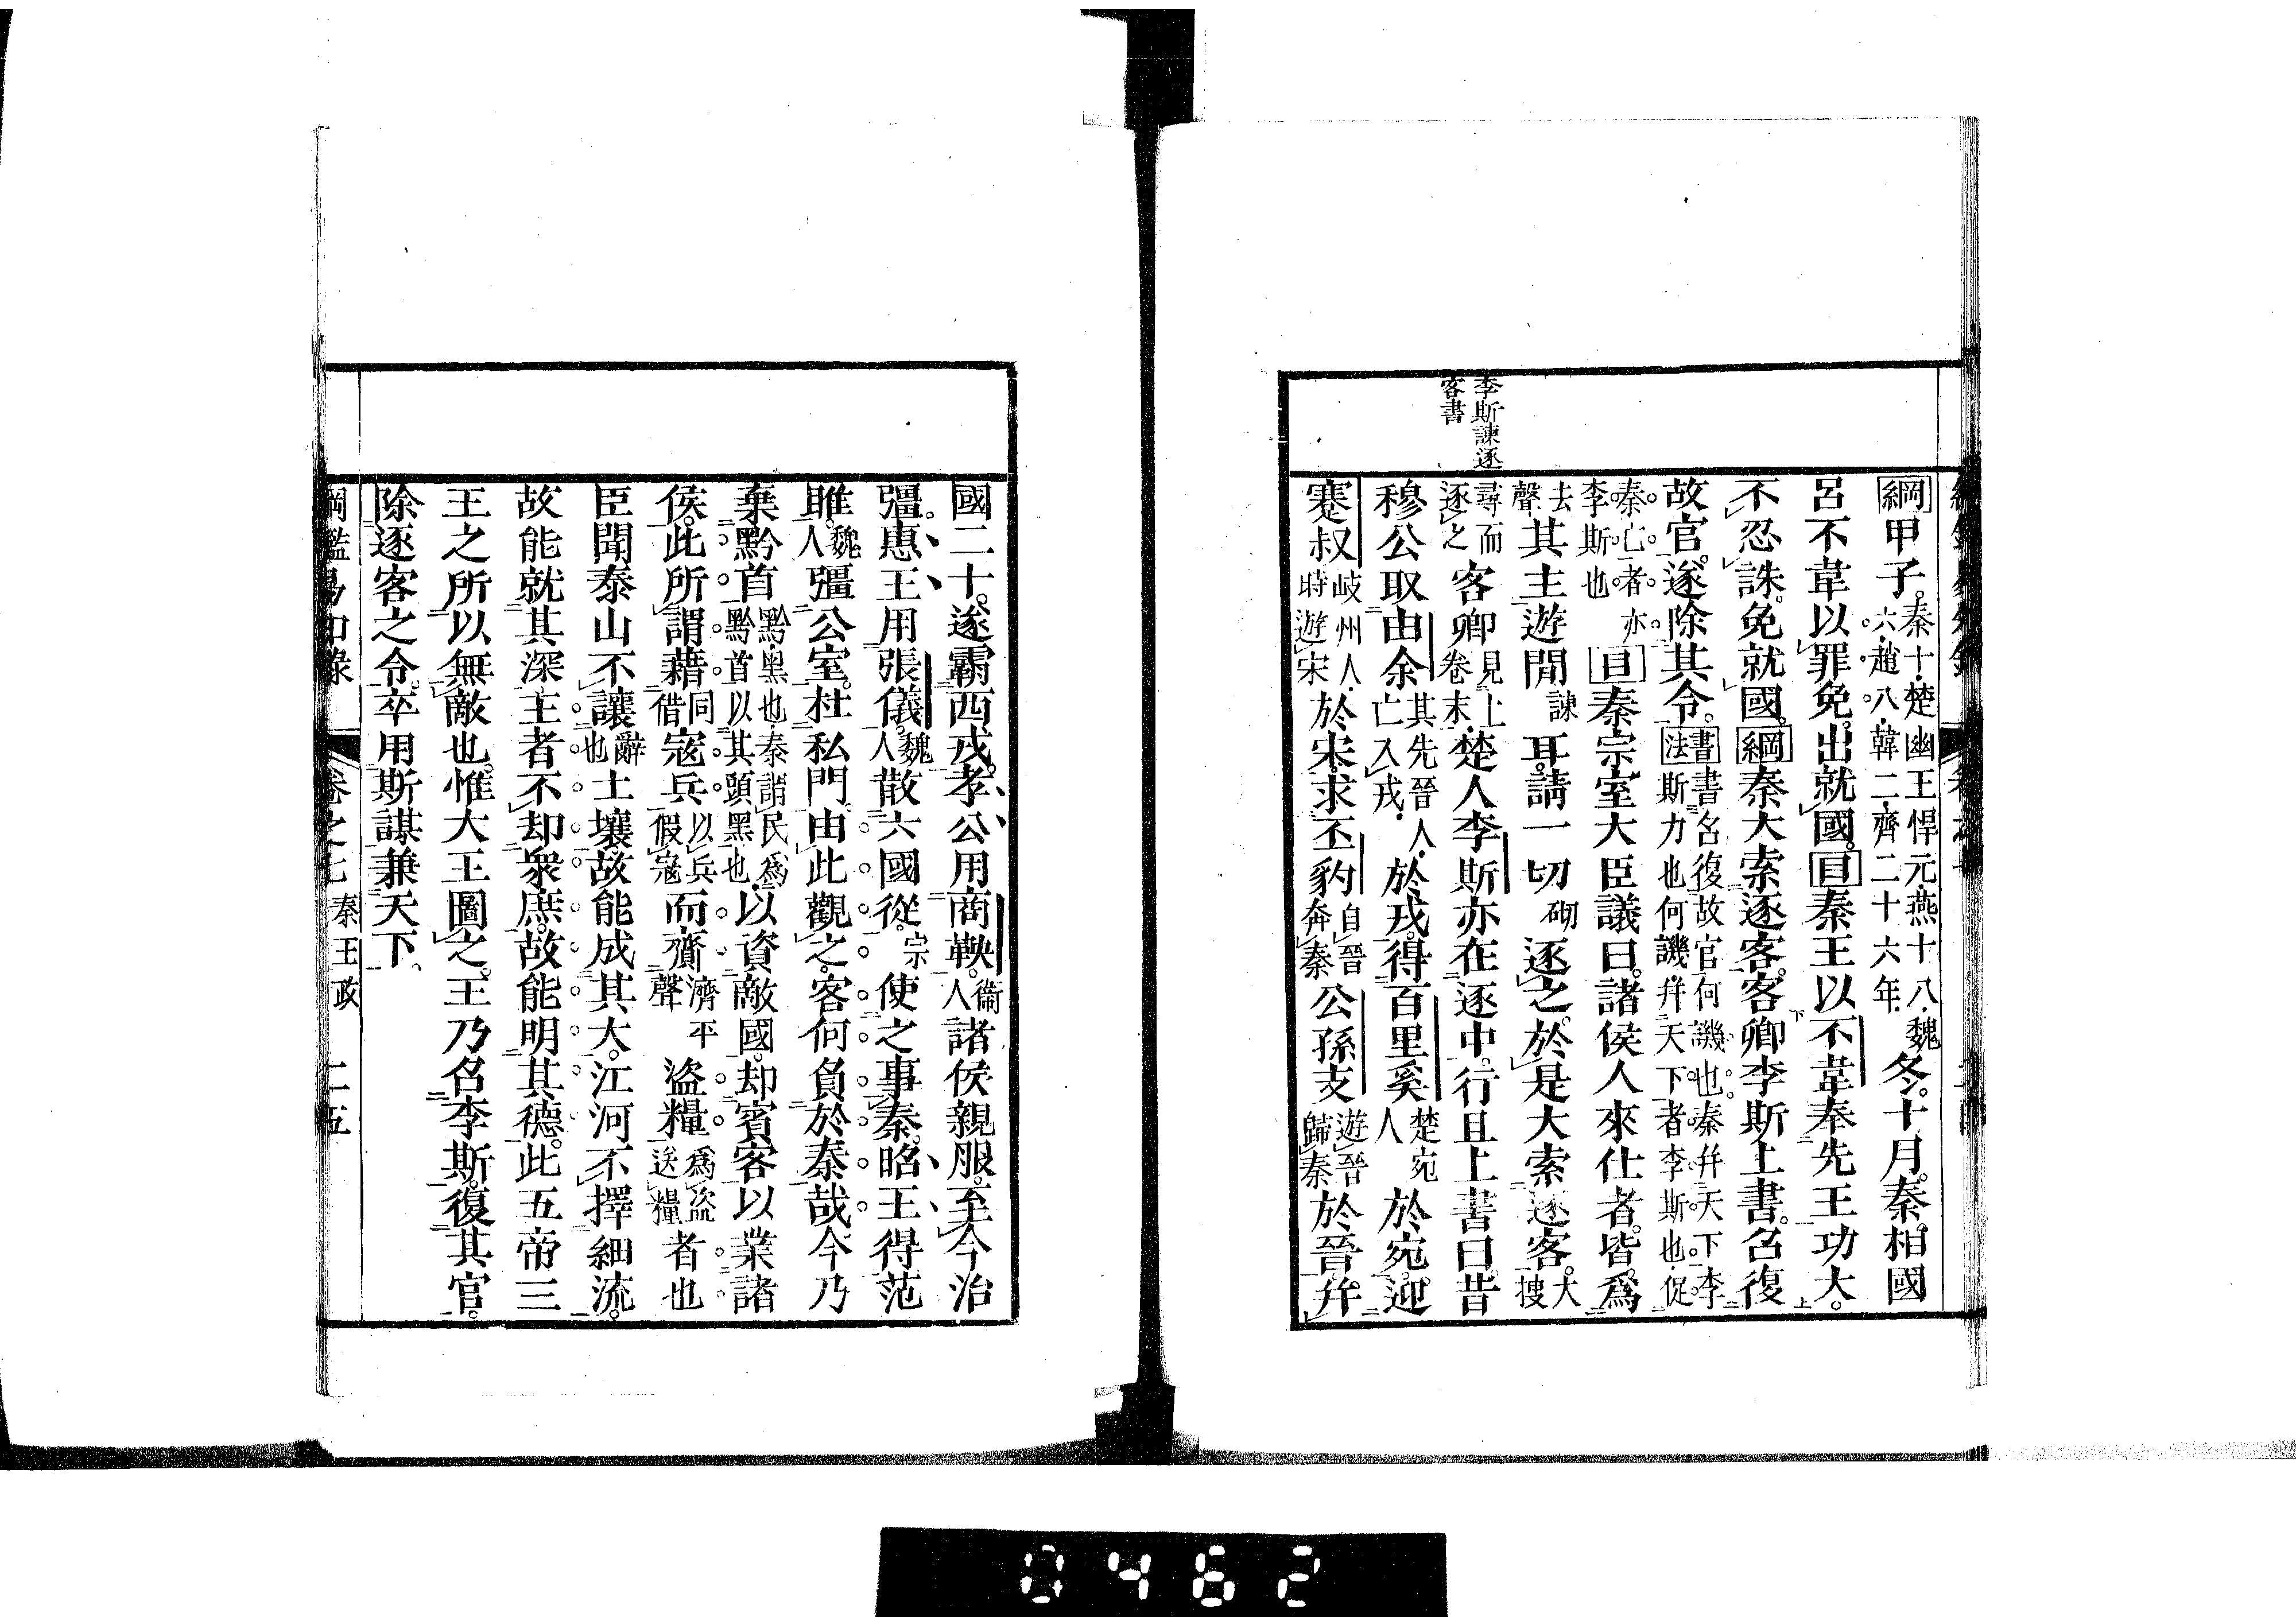 李斯諫逐
客書
綱甲子。秦十。楚幽王悍元。燕十八。魏六。趙八。韓二。齊二十六年。冬。十月。秦。相國
呂不韋以罪免。出就國。目秦王以不韋奉先王功大。
不忍誅。免就國。綱秦大索逐客。客卿李斯上書。召復
故官。遂除其令。書法書名復故官何譏也。秦幷天下李斯力也何譏。幷天下者李斯也。促
秦亡者亦李斯也目秦宗室大臣議曰。諸侯人來仕者。皆爲
去聲其主遊閒諫耳。請一切砌逐之。於是大索逐客。大搜
尋而逐之客卿見上卷末。楚人李斯亦在逐中。行且上書曰。昔
穆公取由余其先晉人。亡入戎。於戎。得百里奚楚宛人於宛。迎
蹇叔岐州人。時遊宋於宋。求丕豹自晉奔秦公孫支遊晉歸秦於晉。幷
國二十。遂霸西戎。孝公用商鞅。衞人諸侯親服。至今治
彊。惠王用張儀。魏人散六國從。宗使之事秦。昭王得范
雎。魏人彊公室。杜私門。由此觀之。客何負於秦哉。今乃
棄黔首黔。黑也。秦謂民爲黔首以其頭黑也。以資敵國。却賓客以業諸
侯。此所謂藉同借寇兵以兵假寇而齎濟平聲盜糧爲盜送糧者也
臣聞泰山不讓辭也土壤。故能成其大。江河不擇細流。
故能就其深。王者不却衆庶。故能明其德。此五帝三
王之所以無敵也。惟大王圖之。王乃召李斯。復其官。
除逐客之令。卒用斯謀兼天下。
綱鑑易知錄 卷之七 秦王政 二五
0462